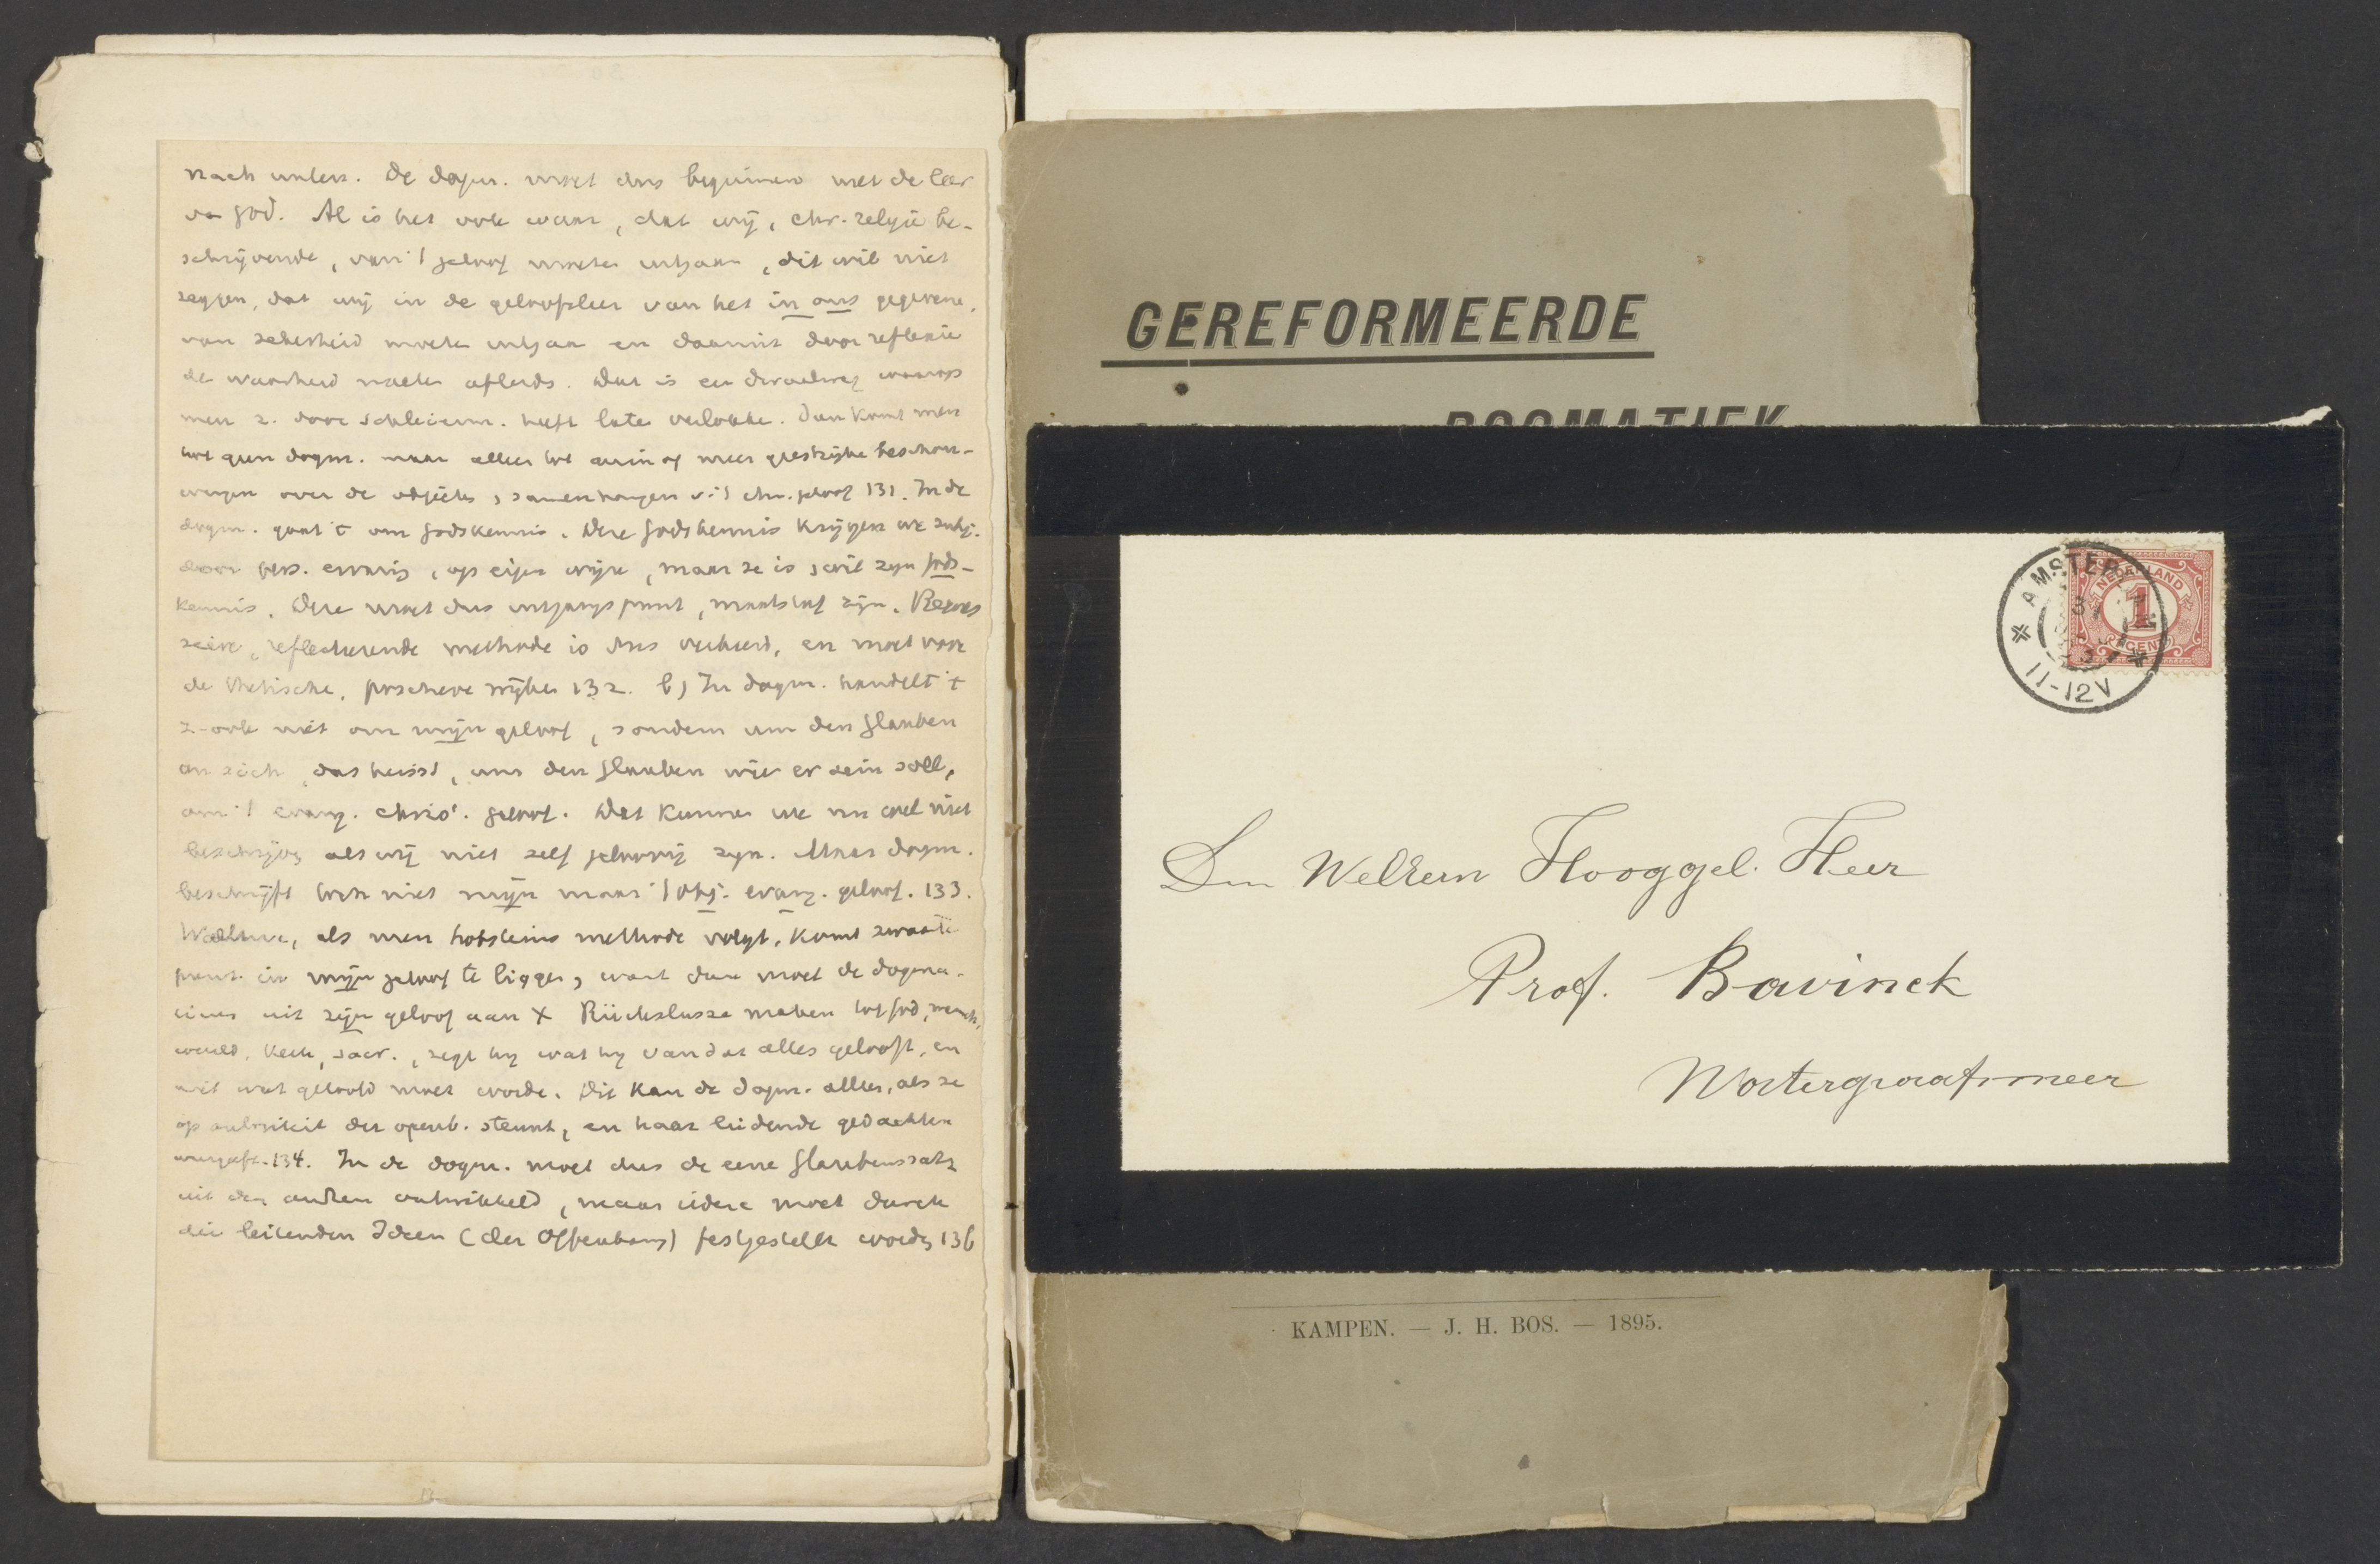 nach unten. De dogm. moet dus beginnen met de leer
van God. Al is het ook waar, dat wij, chr. religie be-
schrijvende, van 't geloof moeten uitgaan, dit wil niet
zeggen, dat wij in de geloofsleer van het in ons gegevene,
van zekerheid moeten uitgaan en daaruit door reflexie
de waarheid moeten afleiden. Dat is een dwaalweg waarop
men z. door Schleierm. heeft laten verlokken. Dan komt men
tot geen dogm. maar alleen tot min of meer geestrijke beschou-
wingen over de objecten, samenhangen v. 't chr. geloof 131. In de
dogm. gaat 't om Godskennis. Deze Godskennis krijgen we subj.
door pers. ervaring, op eigen wijze, maar ze is, wil zijn Gods-
kennis. Deze moet dus uitgangspunt, maatstaf zijn.
reflecterende methode is dus verkeerd, en moet voor
de thetische, wijken 132. b) In dogm. handelt 't
z. ook niet om mijn geloof, sondern um den Glauben
an sich, das heisst, um den Glauben wie er sein soll,
om 't evang. christ. geloof. Dat kunnen we nu wel niet
beschrijven als wij niet zelf geloovig zijn. Maar dogm.
beschrijft toch niet mijn maar 't obj. evang. geloof. 133.
als men methode volgt, komt zwaarte
punt in mijn geloof te liggen, want dan moet de dogma-
ticus uit zijn geloof aan X Rückschlüsse maken tot God, mensch,
wereld, kerk, sacr., zegt hij wat hij van dat alles gelooft, en
niet wat geloofd moet worden. Dit kan de dogm. alleen, als ze
op autoriteit der openb. steunt, en haar leidende gedachten
weergeeft. 134. In de dogm. moet dus de eene Glaubenssatz
uit den andren ontwikkeld, maar iedere moet durch
die leitenden Ideen (der Offenbarung) festgestellt worden 136
GEREFORMEERDE
DOGMATIEK
AMSTER
11-12V
NEDERLAND
1
CENT
Den WelEerw Hooggel. Heer
Prof. Bavinck
Watergraafsmeer
KAMPEN. — J. H. BOS. — 1895.